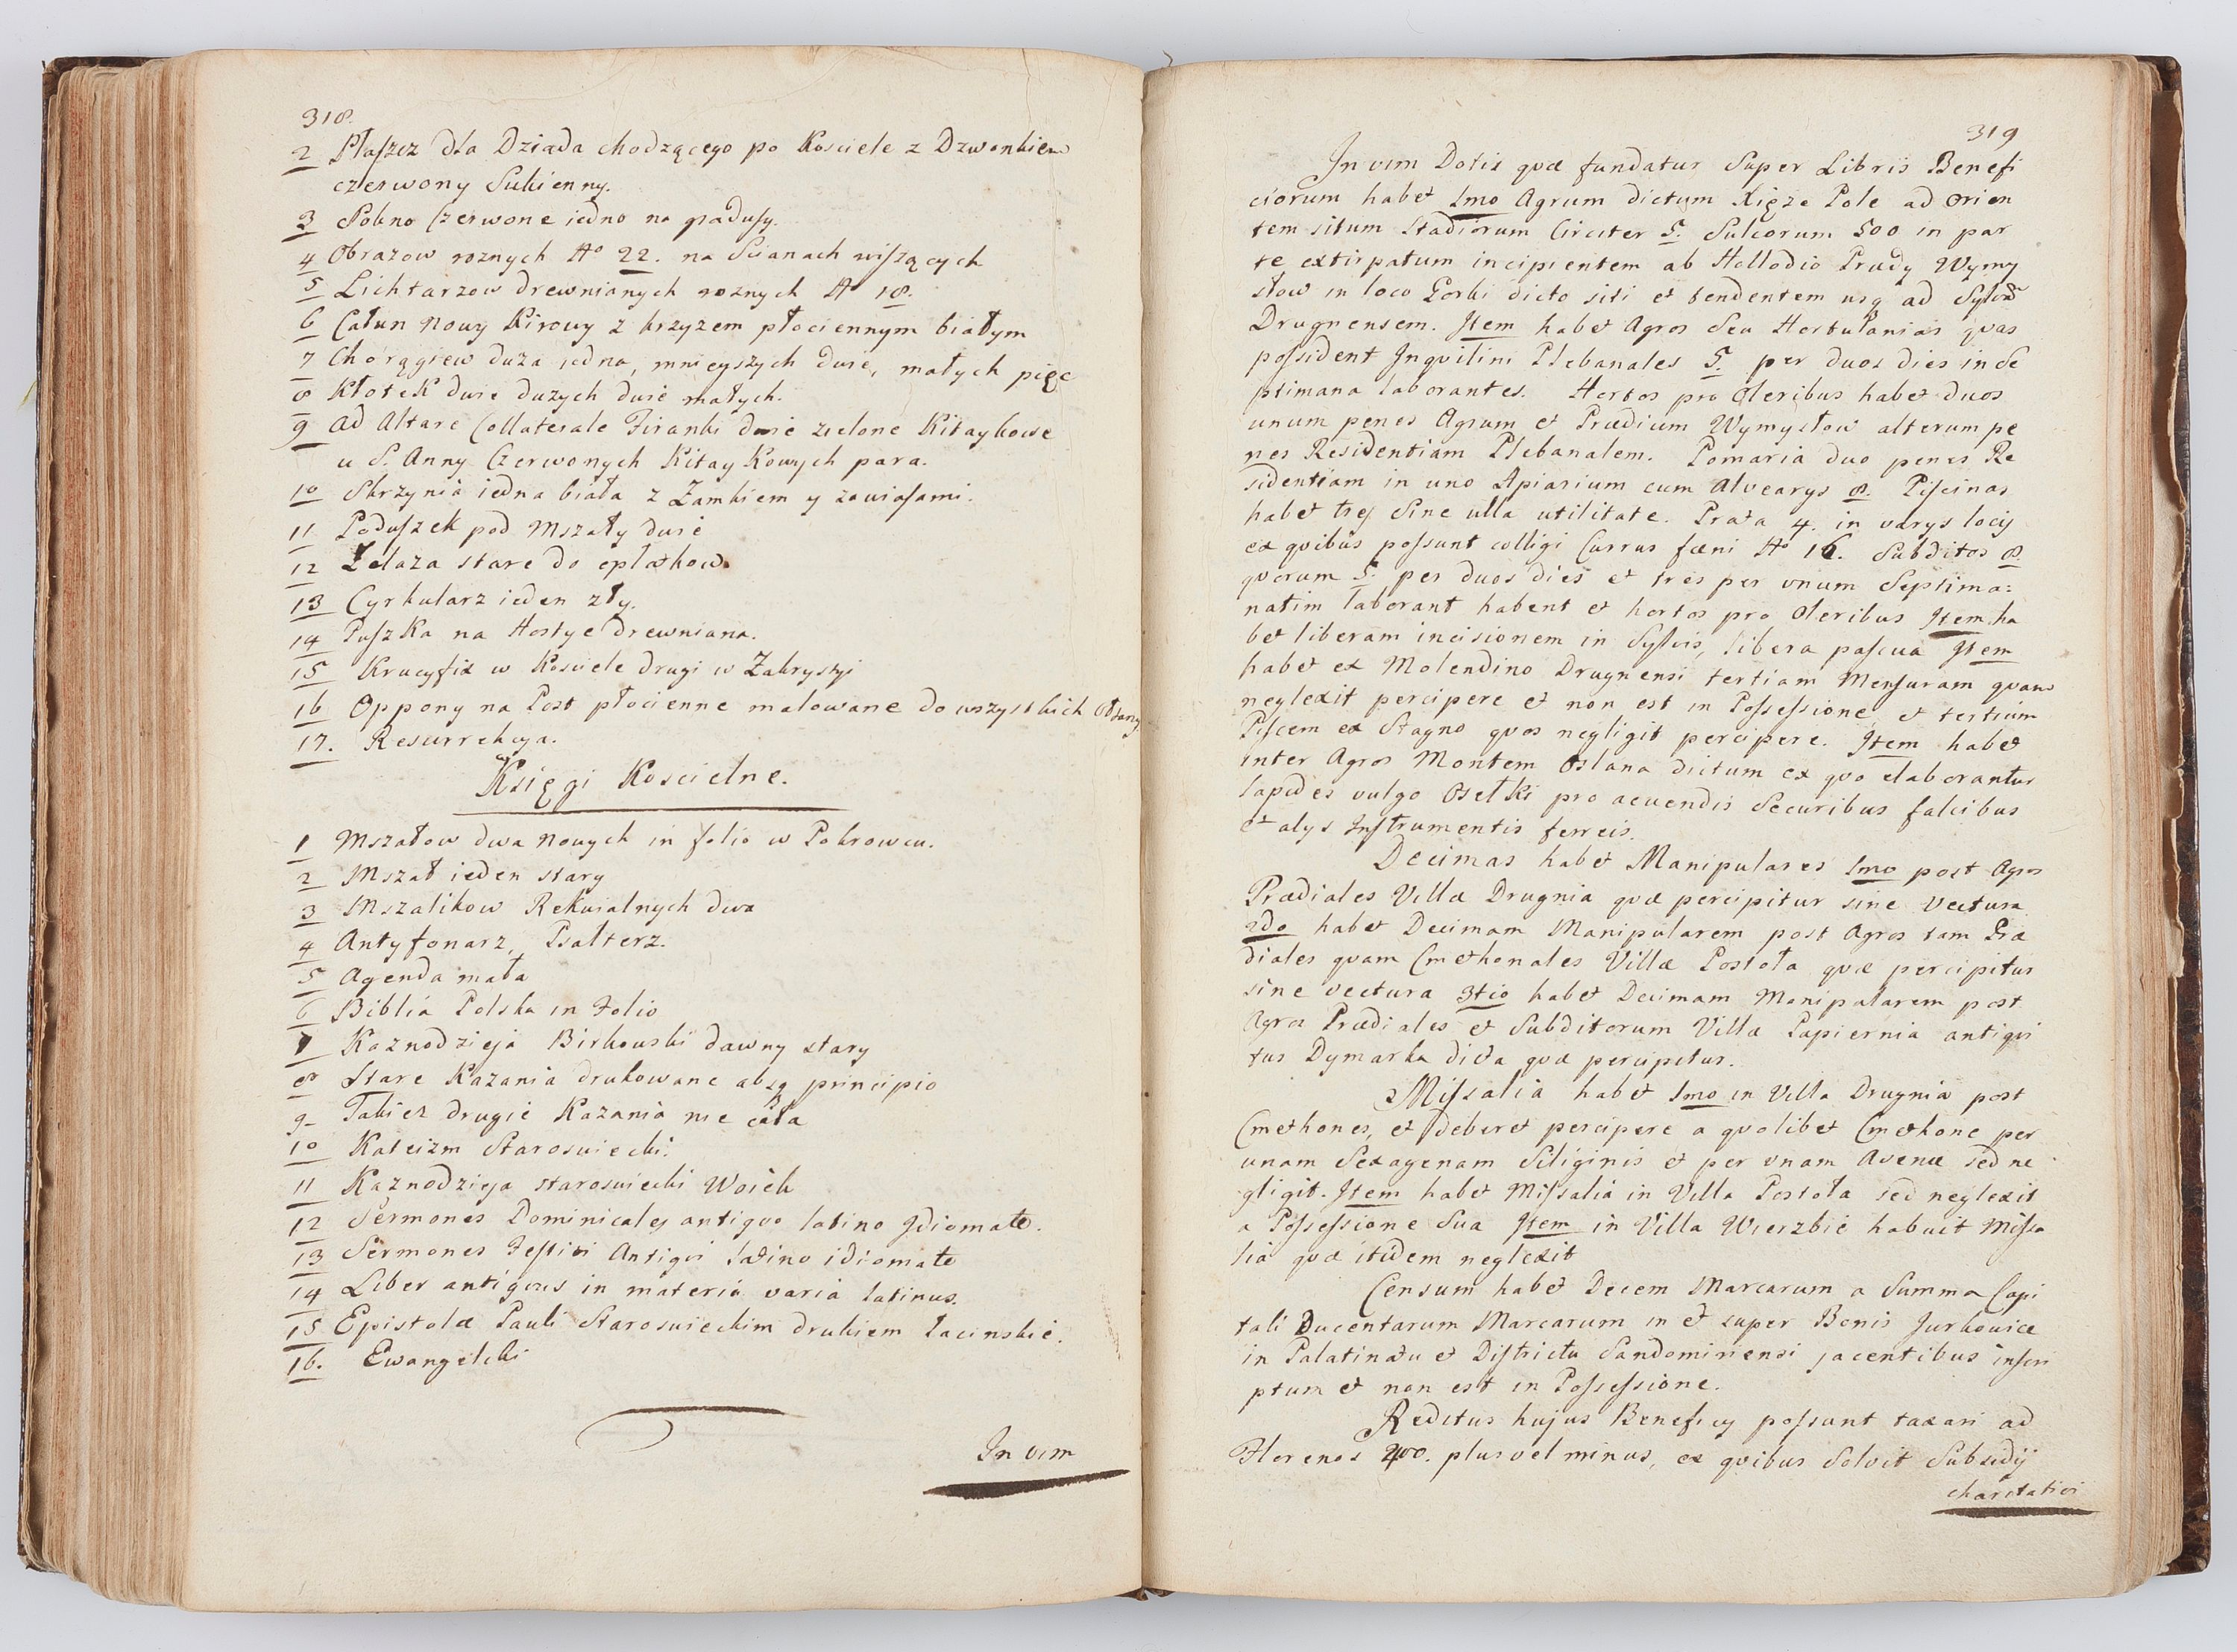 318.
2 Płaszcz dla Dziada chodzącego po Kosciele z Dzwonkiem
czerwony Sukienny.
3 Sukno Czerwone iedno na gradusy.
4 Obrazow roznych No 22. na Scianach wiszących
5 Lichtarzow drewnianych roznych No 18.
6 Całun Nowy Kirowy z krzyzem płociennym białym
7 Chorągiew duza iedna, mnieyszych dwie, małych pięc
8 Kłotek dwie duzych dwie małych.
9 Ad Altare Collaterale Firanki dwie zielone Kitaykowe
u S. Anny Czerwonych Kitaykowych para.
10 Skrzynia iedna biała z Zamkiem y zawiasami.
11 Poduszek pod Mszały dwie
12 Zelaza stare do opłatkow
13 Cyrkularz ieden zły.
14 Puszka na Hostye drewniana.
15 Krucyfix w Kosciele drugi w Zakrystyi
16 Oppony na Post płocienne malowane do wszystkich
17. Resurrekcya.
Księgi Koscielne.
1 Mszałow dwa Nowych in folio w Pokrowcu.
2 Mszał ieden stary
3 Mszalikow Rekwialnych dwa
4 Antyfonarz, Psałterz.
5 Agenda mała
6 Biblia Polska in Folio
7 Kaznodzieja Birkowski dawny stary
8 Stare Kazania drukowane absq principio
9 Takiez drugie Kazania nie cała
10 Kateizm Staroswiecki.
11 Kaznodzieja staroswiecki Woiek
12 Sermones Dominicales antiquo latino Jdiomate.
13 Sermones Festivi Antiqui latino idiomate
14 Liber antiquus in materia varia latinus.
15 Epistolæ Pauli Staroswieckim drukiem łacinskie.
16. Ewangeliki
In vim
319
In vim Dotis quæ fundatur Super Libris Benefi
ciorum habet 1mo Agrum dictum Xięze Pole ad Orien
tem situm Stadiorum Circiter 5. Sulcorum 500 in par
te extirpatum incipientem ab Hallodio Prædy Wymy
słow in loco Gorki dicto siti et tendentem usq ad Sylvam
Drugnensem. Jtem habet Agros Seu Hortulanias quas
possident Jnquilini Plebanales 5. per duos dies in Se
ptimana laborantes. Hortos pro Oleribus habet duos
unum penes Agrum et Prædium Wymysłow alterum pe
nes Residentiam Plebanalem. Pomaria duo penes Re
sidentiam in uno Apiarium cum Alvearys 8. Piscinas
habet tres Sine ulla utilitate. Prata 4. in varys locis
ex quibus possunt colligi Currus fæni No 16. Subditos 8.
quorum 5. per duos dies et tres per unum Septima:
natim laborant habent et hortos pro Oleribus Jtem ha
bet liberam incisionem in Sylvis, libera pascua Jtem
habet ex Molendino Drugnensi tertiam Mensuram quam
neglexit percipere et non est in Possessione, et tertium
Piscem ex Stagno quos negligit percipere. Jtem habet
inter Agros Montem Oslana dictum ex quo elaborantur
lapides vulgo Osełki pro acuendis Securibus falcibus
et alys Jnstrumentis ferreis.
Decimas habet Manipulares 1mo post Agros
Prædiales Villæ Drugnia quæ percipitur sine Vectura
2do habet Decimam Manipularem post Agros tam Præ
diales quam Cmethonales Villæ Postoła quæ percipitur
sine vectura 3tio habet Decimam Manipularem post
Agros Prædiales et Subditorum Villæ Papiernia antiqui
tus Dymarka dicta quæ percipitur.
Missalia habet 1mo in Villa Drugnia post
Cmethones, et deberet percipere a quolibet Cmethone per
unam Sexagenam Siliginis et per unam Avenæ sed ne
gligit. Jtem habet Missalia in Villa Postoła sed neglexit
a Possessione Sua Jtem in Villa Wierzbie habuit Missa
lia quæ itidem neglexit
Censum habet Decem Marcarum a Summa Capi
tali Ducentarum Marcarum in et super Bonis Jurkowice
in Palatinatu et Districtu Sandomiriensi jacentibus inscri
ptum et non est in Possessione.
Reditus hujus Beneficy possunt taxari ad
Florenos 400. plus vel minus, ex quibus Solvit Subsidij
charitativi